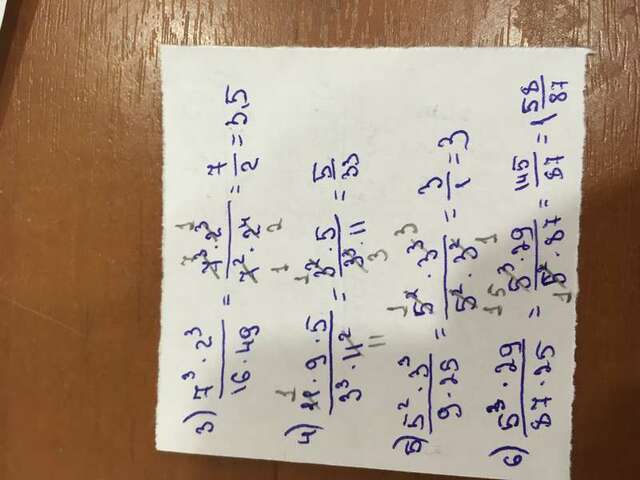 3) 7³ · 2³ / 16 · 49 = 7³ · 2³ / 7² · 2⁴ = 7/2 = 3,5
4) 11 · 9 · 5 / 3³ · 11² = 3² · 5 / 3³ · 11 = 5/33
5) 5² · 3³ / 9 · 25 = 5² · 3³ / 5² · 3² = 3/1 = 3
6) 5³ · 29 / 87 · 25 = 5³ · 29 / 5² · 87 = 145/87 = 1 58/87